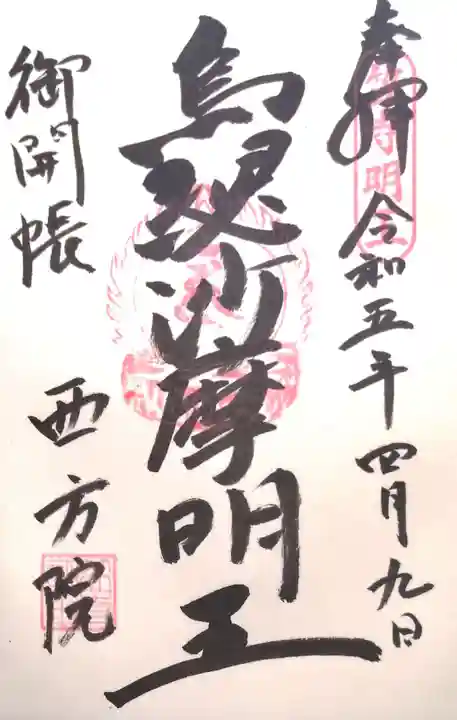 奉拝 令和五年四月九日
烏瑟沙摩明王
御開帳 西方院